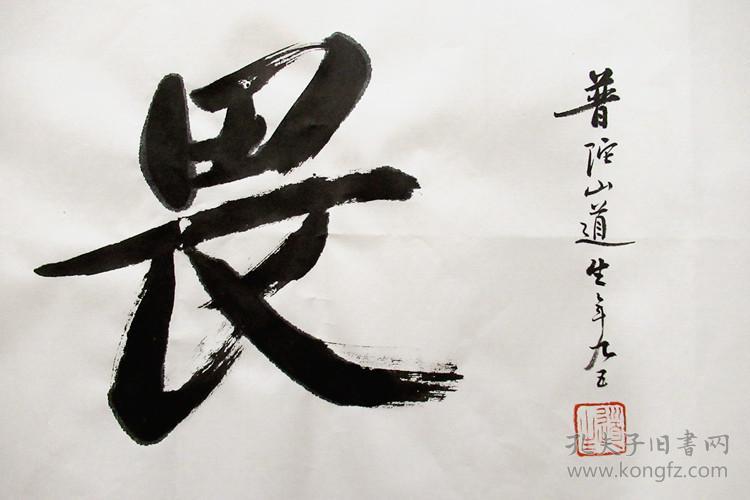 畏
普陀山道生年九五
道生
孔夫子旧书网
www.kongfz.com